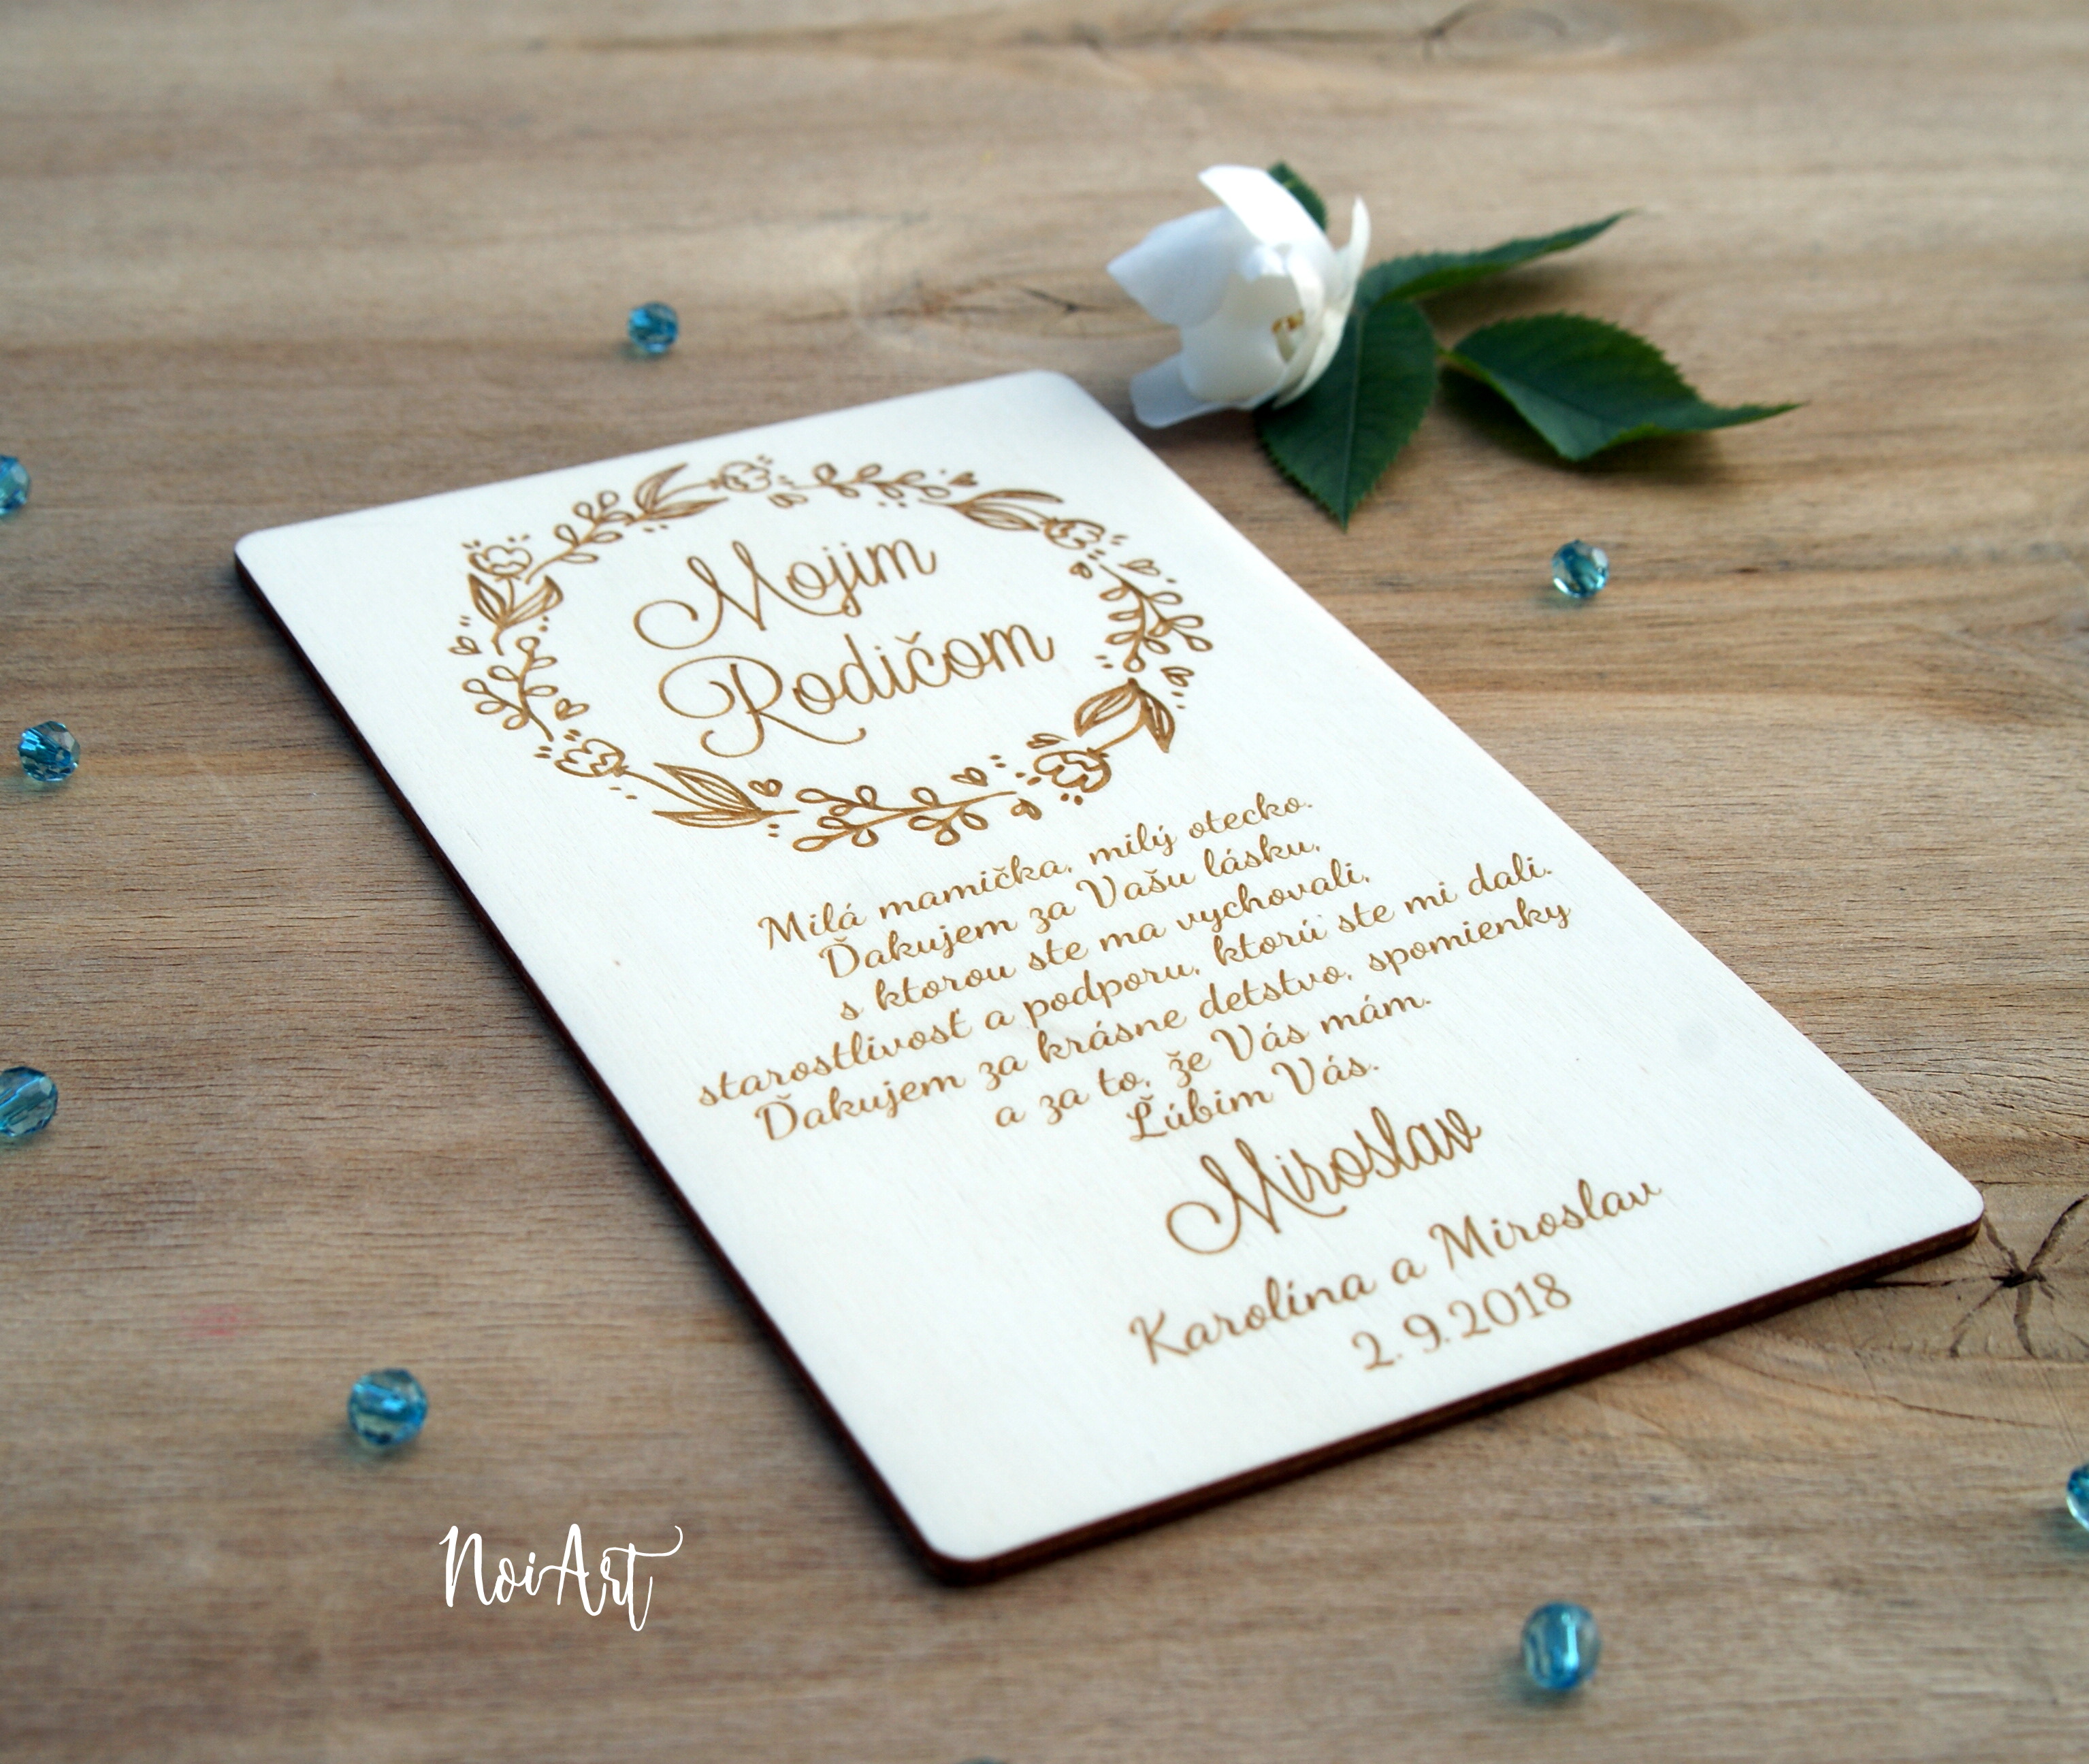 Mojim
Rodičom
Milá mamička, milý otecko.
Ďakujem za Vašu lásku,
s ktorou ste ma vychovali,
starostlivosť a podporu, ktorú ste mi dali.
Ďakujem za krásne detstvo, spomienky
a za to, že Vás mám.
Ľúbim Vás.
Miroslav
Karolína a Miroslav
2.9.2018
NoiArt